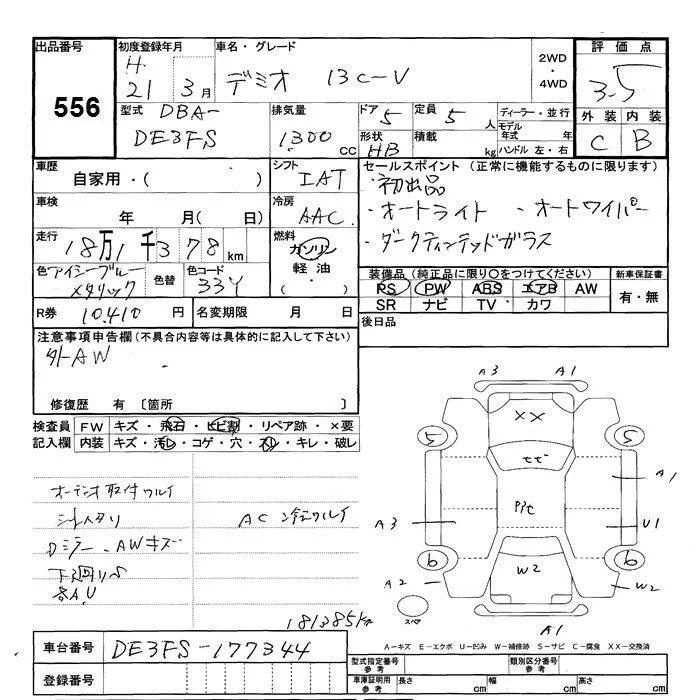 出品番号 初度登録年月 車名・グレード 2WD・4WD 評価点
556 H. 21 3月 デミオ 13C-V 3.5
型式 DBA- DE3FS 排気量 1300 CC ドア 5 定員 5 人 ディーラー・並行 外装 内装
形状 HB 積載 kg モデル年式 年 ハンドル 左・右 C B
車歴 自家用・( ) シフト IAT セールスポイント (正常に機能するものに限ります)
・初出品
車検 年 月( 日) 冷房 AAC ・オートライト ・オートワイパー
走行 18万1千378km 燃料 ガソリン 軽油・( ) ・ダークティンテッドガラス
色 アイシーブルーメタリック 色替 色コード 33Y 装備品 (純正品に限り○をつけてください) 新車保証書
PS PW ABS エアB AW 有・無
SR ナビ TV カワ
R券 10,410 円 名変期限 月 日 後日品
注意事項申告欄 (不具合内容等は具体的に記入して下さい)
外AW
修復歴 有 〔箇所 〕
検査員 FW キズ・飛石・ヒビ割・リペア跡・×要
記入欄 内装 キズ・汚レ・コゲ・穴・スレ・キレ・破レ
オーディオ取付ワルイ
AC
Dミラー、AWキズ
各A.U
181385km
A3 A1
XX
5 5
A1
A3 U1
6 6
A2 W2 W2
スペ
A1
A-キズ E-エクボ U-凹み W-補修跡 S-サビ C-腐食 XX-交換済
車台番号 DE3FS-177344
型式指定番号 参考 類別区分番号 参考
登録番号 車庫証明用 参考 長さ cm 幅 cm 高さ cm